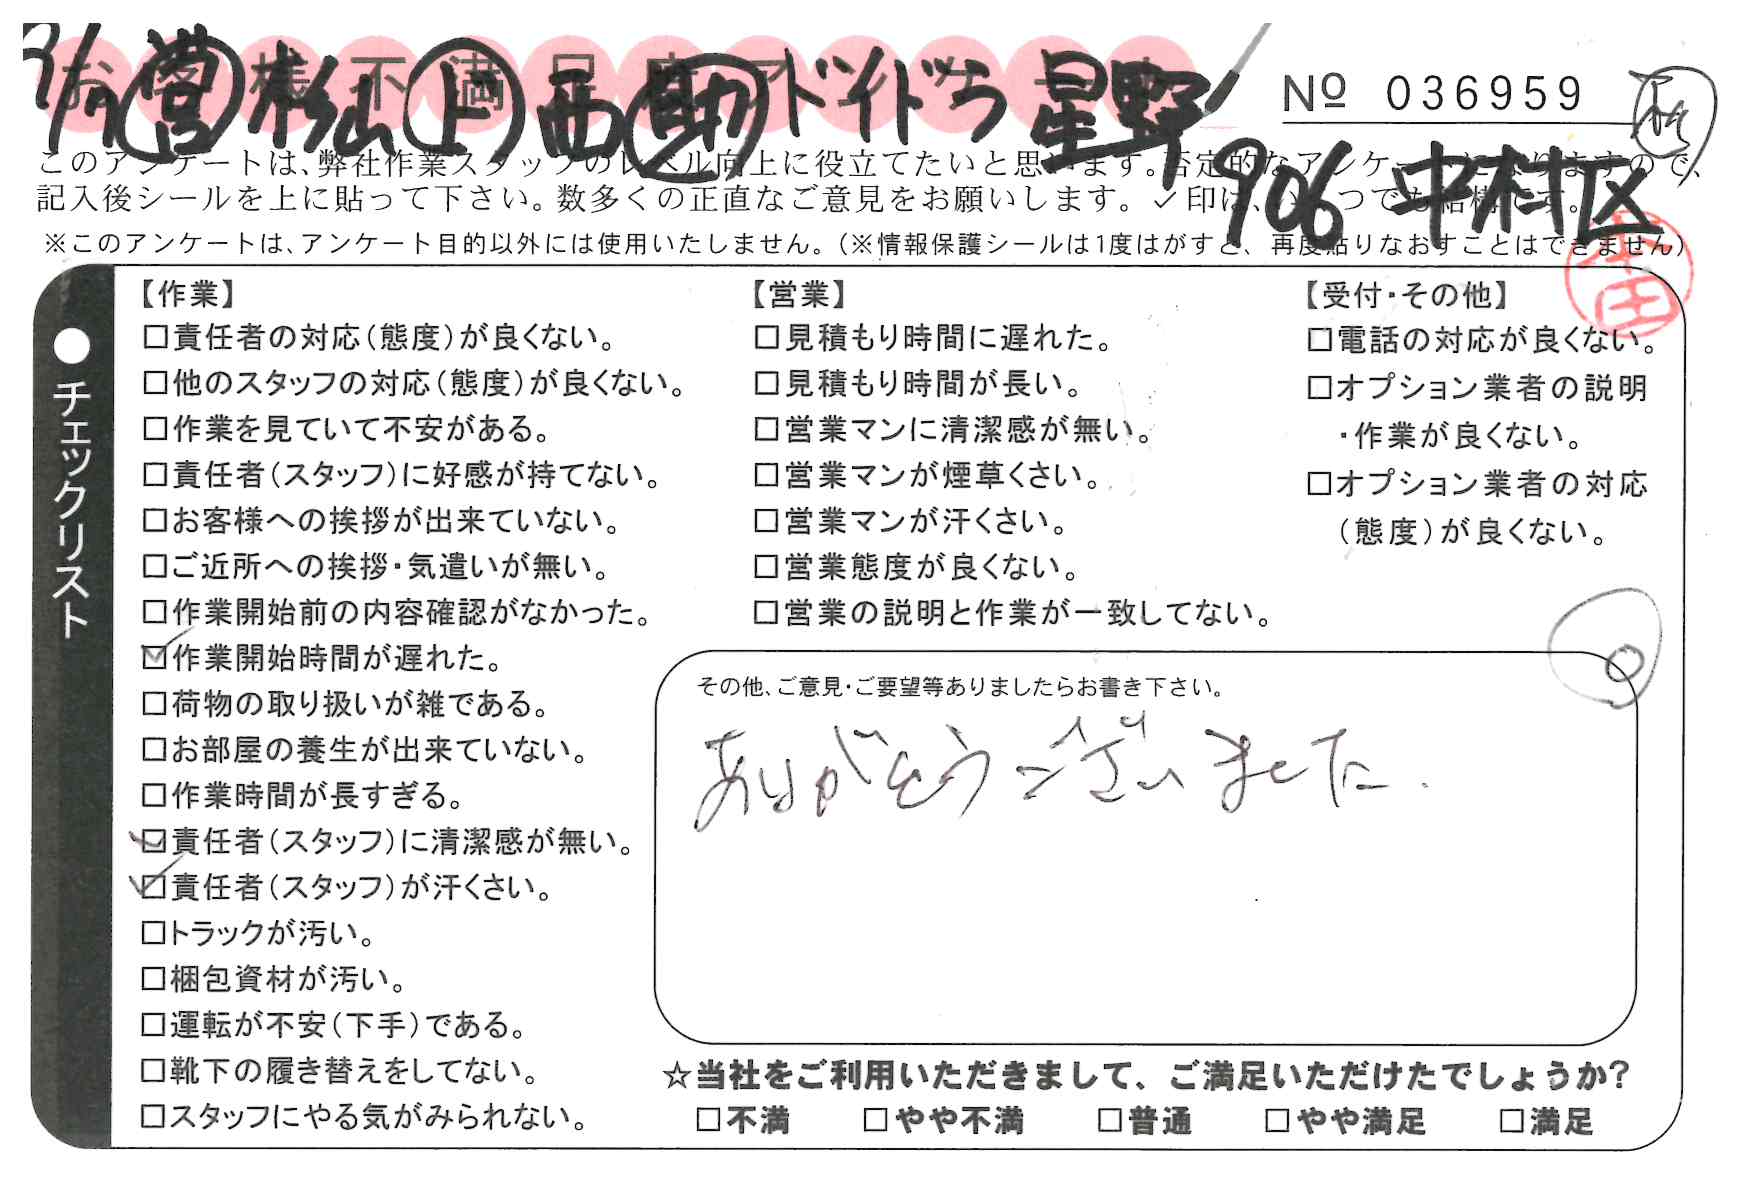 お客様不満足度アンケート
営 杉山 上 西 助 ドイ ドラ 星野
№ 036959
906 中村区
このアンケートは、弊社作業スタッフのレベル向上に役立てたいと思います。否定的なアンケートになりますので、
記入後シールを上に貼って下さい。数多くの正直なご意見をお願いします。✓印は、いくつでも結構です。
※このアンケートは、アンケート目的以外には使用いたしません。(※情報保護シールは1度はがすと、再度貼りなおすことはできません)
本田
●チェックリスト
【作業】
□責任者の対応(態度)が良くない。
□他のスタッフの対応(態度)が良くない。
□作業を見ていて不安がある。
□責任者(スタッフ)に好感が持てない。
□お客様への挨拶が出来ていない。
□ご近所への挨拶・気遣いが無い。
□作業開始前の内容確認がなかった。
☑作業開始時間が遅れた。
□荷物の取り扱いが雑である。
□お部屋の養生が出来ていない。
□作業時間が長すぎる。
☑責任者(スタッフ)に清潔感が無い。
☑責任者(スタッフ)が汗くさい。
□トラックが汚い。
□梱包資材が汚い。
□運転が不安(下手)である。
□靴下の履き替えをしてない。
□スタッフにやる気がみられない。
【営業】
□見積もり時間に遅れた。
□見積もり時間が長い。
□営業マンに清潔感が無い。
□営業マンが煙草くさい。
□営業マンが汗くさい。
□営業態度が良くない。
□営業の説明と作業が一致してない。
【受付・その他】
□電話の対応が良くない。
□オプション業者の説明
・作業が良くない。
□オプション業者の対応
(態度)が良くない。
その他、ご意見・ご要望等ありましたらお書き下さい。
ありがとうございました.
☆当社をご利用いただきまして、ご満足いただけたでしょうか?
□不満 □やや不満 □普通 □やや満足 □満足